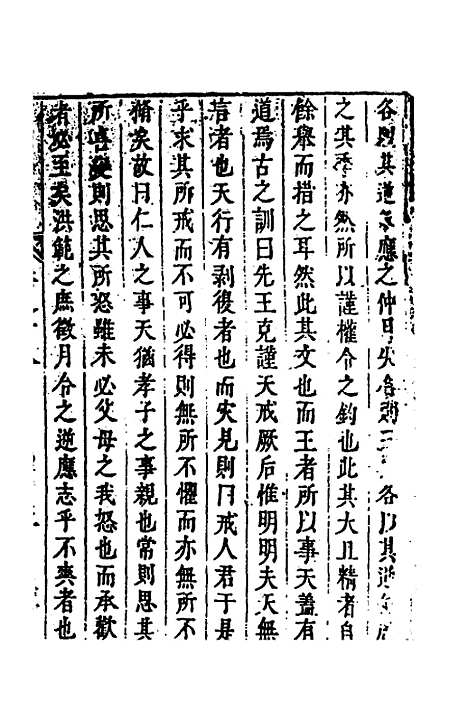 各以其道應之仲日失三各以其逆
之其季亦然所以謹權今之鈞也此其大且精者自
餘舉而措之耳然此其文也而王者所以事天蓋有
道焉古之訓曰先王克謹天戒厥后惟明明夫天無
言者也天行有剥復者也而灾見則曰戒人君于是
乎求其所戒而不可必得則無所不懼而亦無所不
脩矣故曰仁人之事天猶孝子之事親也常則思其
所喜變則思其所怒雖未必父母之我怒也而承歡
者必至矣洪範之庶徵月令之逆應志乎不爽者也